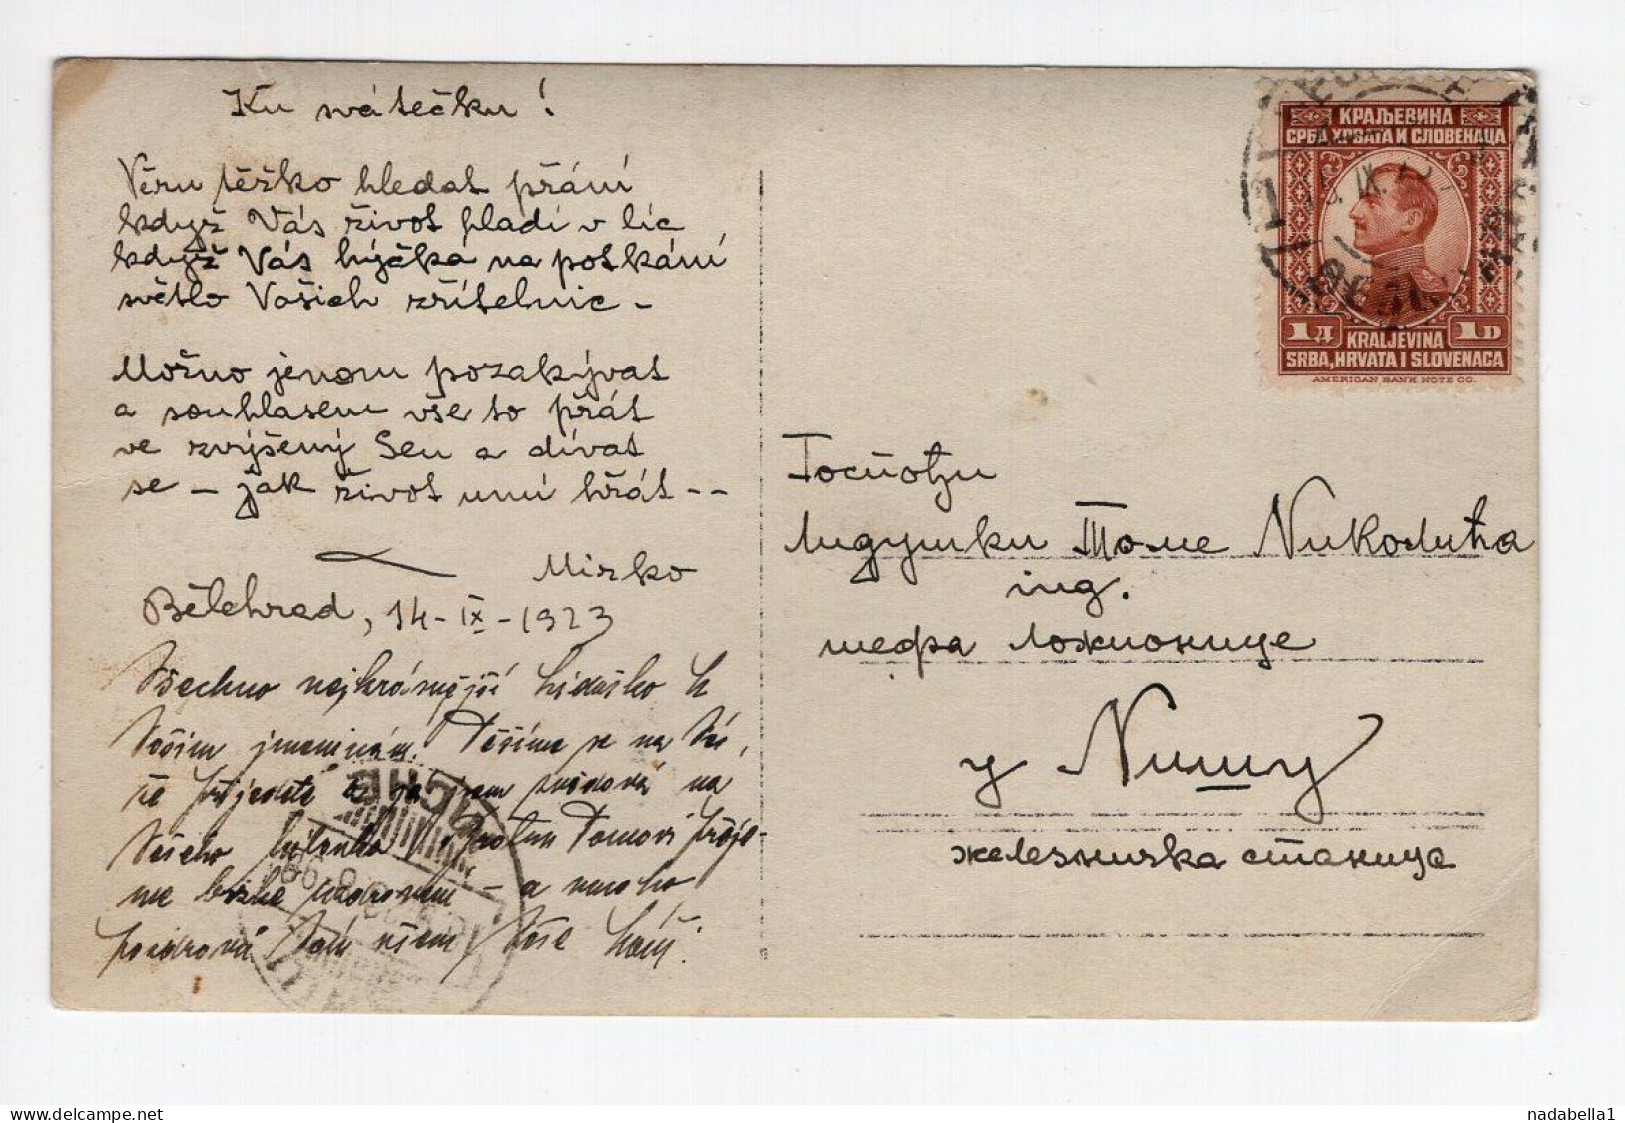 Ku svátečku!
Věru těžko hledat přání
když Vás život hladí v líc
když Vás hýčká na potkání
světlo Vašich zřítelnic –
Možno jenom pozakývat
a souhlasem vše to přát
ve zvýšený sen a dívat
se – jak život umí hřát - -
Mirko
Bělehrad, 14-IX-1923
Všechno nejkrásnější Liduško k
Vašim jmeninám. Těšíme se na Vás,
že přijedete a já jsem zvědová na
Vašeho Tomovi přeje-
me brzké uzdravení – a mnoho
pozdravů Vám všem Vaše
КРАЉЕВИНА
СРБА, ХРВАТА И СЛОВЕНАЦА
1 Д
1 D
KRALJEVINA
SRBA, HRVATA I SLOVENACA
AMERICAN BANK NOTE CO.
Госпођи
Лидушки Томе Николића
ing.
шефа ложионице
у Нишу
железничка станица
delcampe.net
nadabella1